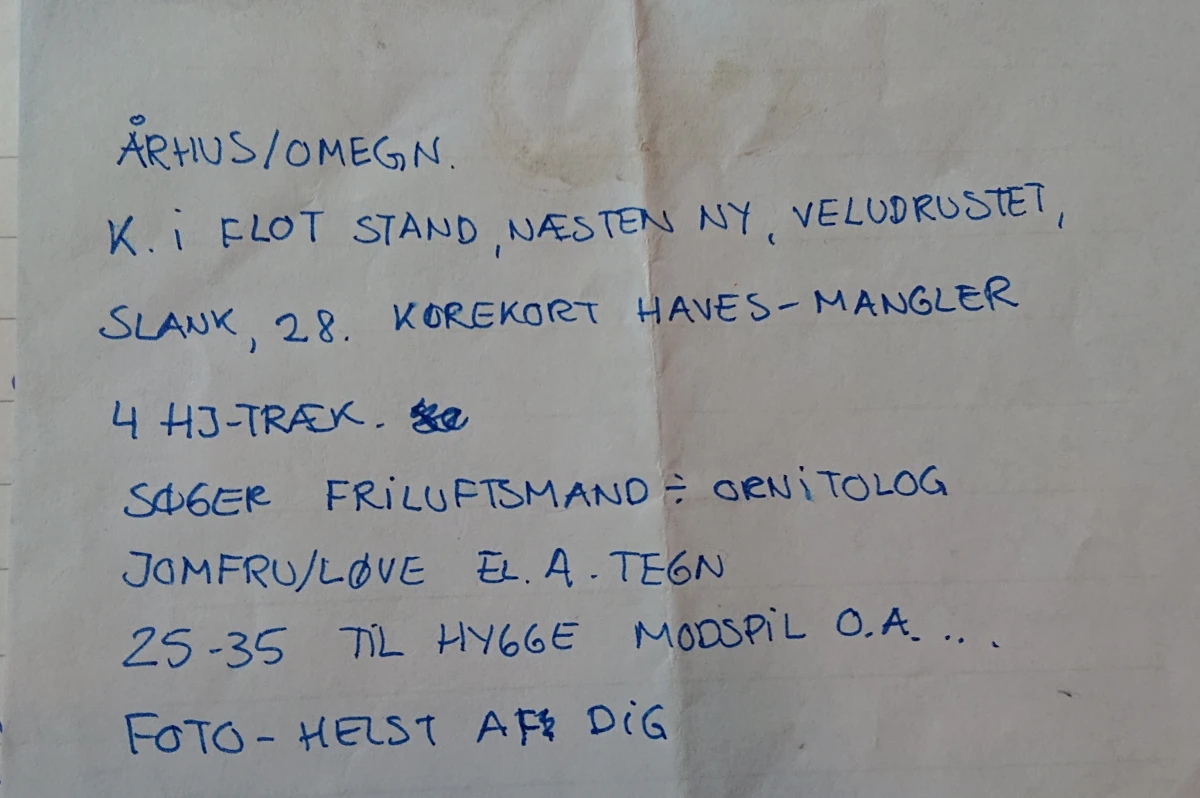 ÅRHUS/OMEGN.
K. i FLOT STAND, NÆSTEN NY, VELUDRUSTET,
SLANK, 28. KØREKORT HAVES - MANGLER
4 HJ-TRÆK.
SØGER FRILUFTSMAND ÷ ORNITOLOG
JOMFRU/LØVE EL. A. TEGN
25-35 TIL HYGGE MODSPIL O.A. ...
FOTO - HELST AF DIG